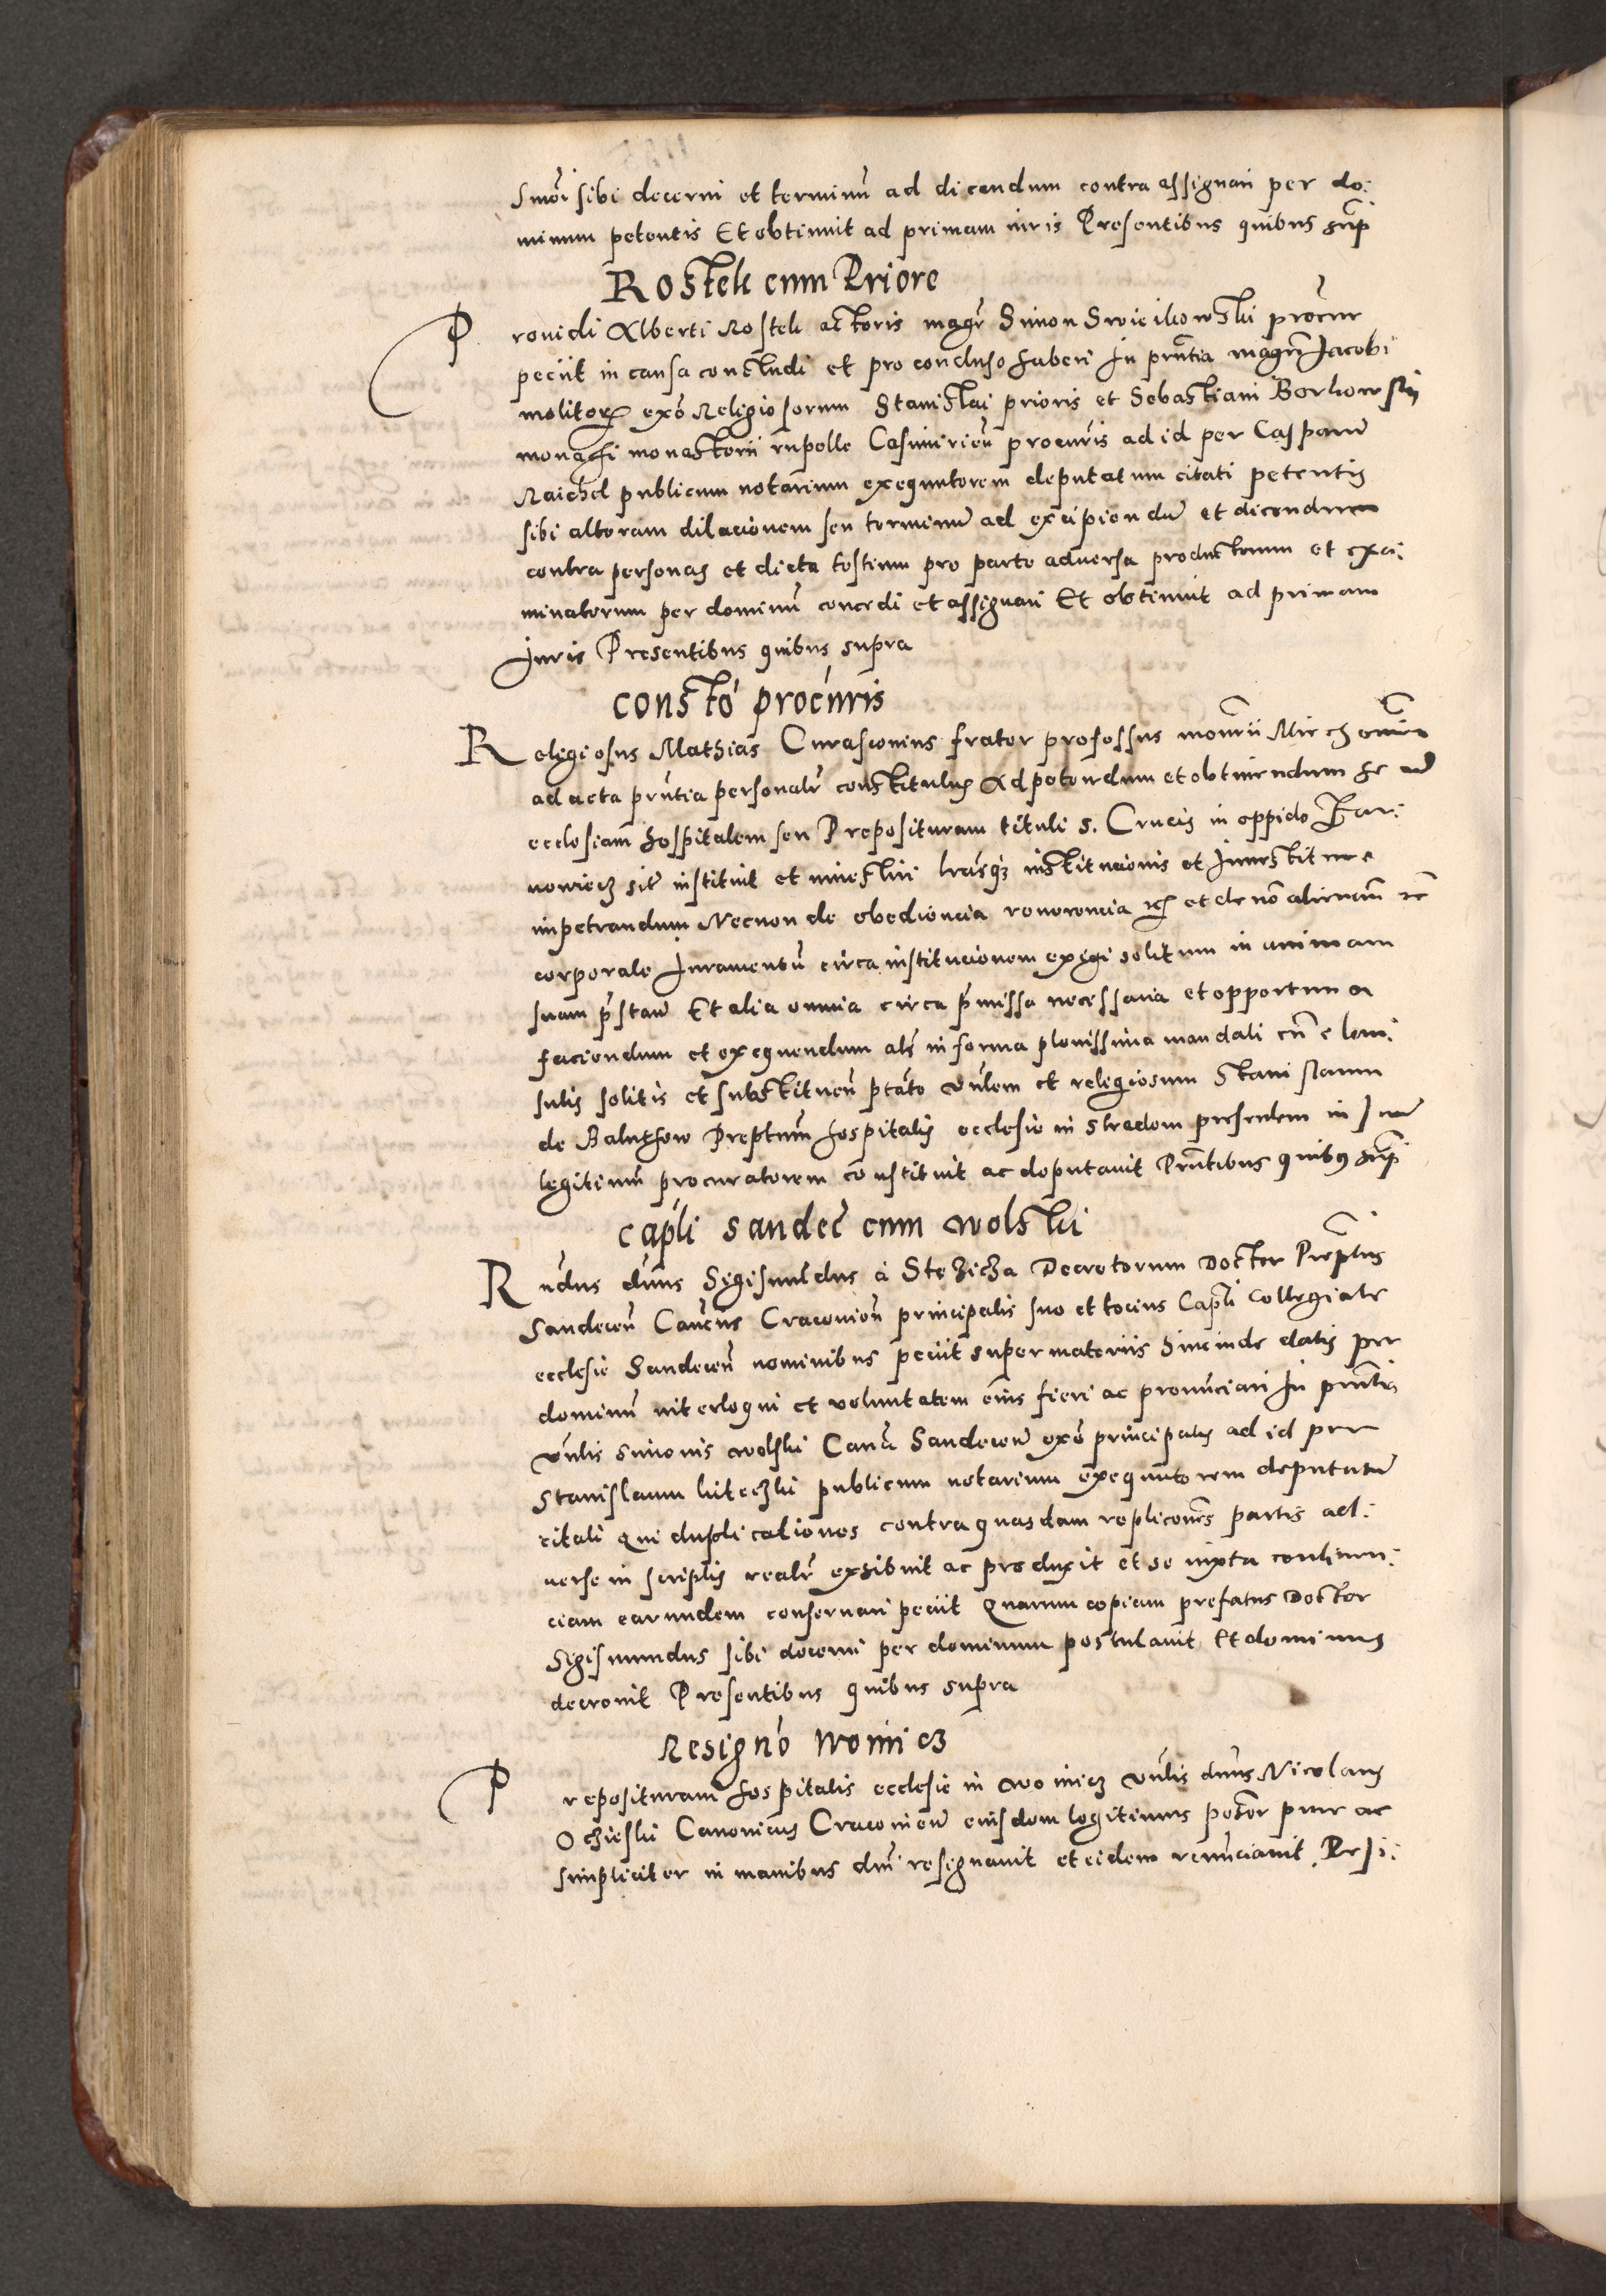 Simoni sibi decerni et terminũ ad dicendum contra assignari per do:
minum petentis Et obtinuit ad primam iuris Presentibus quibus sup̃
Rostek cum Priore
Prouidi Alberti Rostek actoris magr̃ Simon procũr
peciit in causa concludi et pro concluso haberi In pñtia magr̃i Jacobi
molitor exõ Religiosorum Stanislai prioris et Sebastiani Borkowskij
monachi monasterii rupelle Casimirieñ procũris ad id per Casparũ
Raichel publicum notarium exequutorem deputatum citati petentis
sibi alteram dilacionem seu terminũ ad excipiendũ et dicendum
contra personas et dicta testium pro parte aduersa productorum et exa:
minatorum per dominũ concedi et assignari Et obtinuit ad primam
Juris Presentibus quibus supra
Constõ procũris
Religiosus Mathias Curasconius frater professus moñrii
ad acta pñtia personalr̃ constitutus Ad petendum et obtinendum se ad
ecclesiam hospitalem seu Preposituram tituli S. Crucis in oppido Har:
nowiecz sitã instituit et inuestiri lrãsq3 institucionis et Inuestiture
impetrandum Necnon de obediencia reuerencia et de non alienañ
corporale Juramentũ circa institucionem exigi solitum in animam
suam p̃stanď Et alia omnia circa p̃missa necessaria et opportuna
faciendum et exequendum als in forma plenissima mandati cũ clau:
sulis solitis et substitueñ ptãte vñlem et religiosum Stanislaum
de Baluthow Preptum hospitalis ecclesie in Stradom presentem in suũ
legitimũ procuratorem constituit ac deputauit Pñtibus quibus sup̃
Capli Sandec̃ cum Wolski
Rñdus dñus Sigismundus a Stezicza Decretorum Doctor Prep̃tus
Sandeceñ Cañcus Cracouieñ principalis suo et tocius Capli Collegiate
ecclesie Sandeceñ nominibus peciit super materiis hincinde datis per
dominũ interloqui et voluntatem eius fieri ac pronũciari In pñtia
vñlis Simonis Wolski Cañci Sandeceñ exõ principalis ad id per
Stanislaum publicum notarium exequutorem deputatũ
citati Qui duplicationes contra quasdam replicões partis ad:
uerse in scriptis realr̃ exhibuit ac produxit et se iuxta continen:
ciam earundem conseruari peciit Quarum copiam prefatus Doctor
Sigismundus sibi decerni per dominum postulauit Et dominus
decreuit Presentibus quibus supra
Resignõ Woinicz
Preposituram hospitalis ecclesie in Woinicz vñlis dñus Nicolaus
Oczieski Canonicus Cracouieñ eiusdem legitimus posšor pure ac
simpliciter in manibus dñi resignauit et eidem renũciauit Prsi: